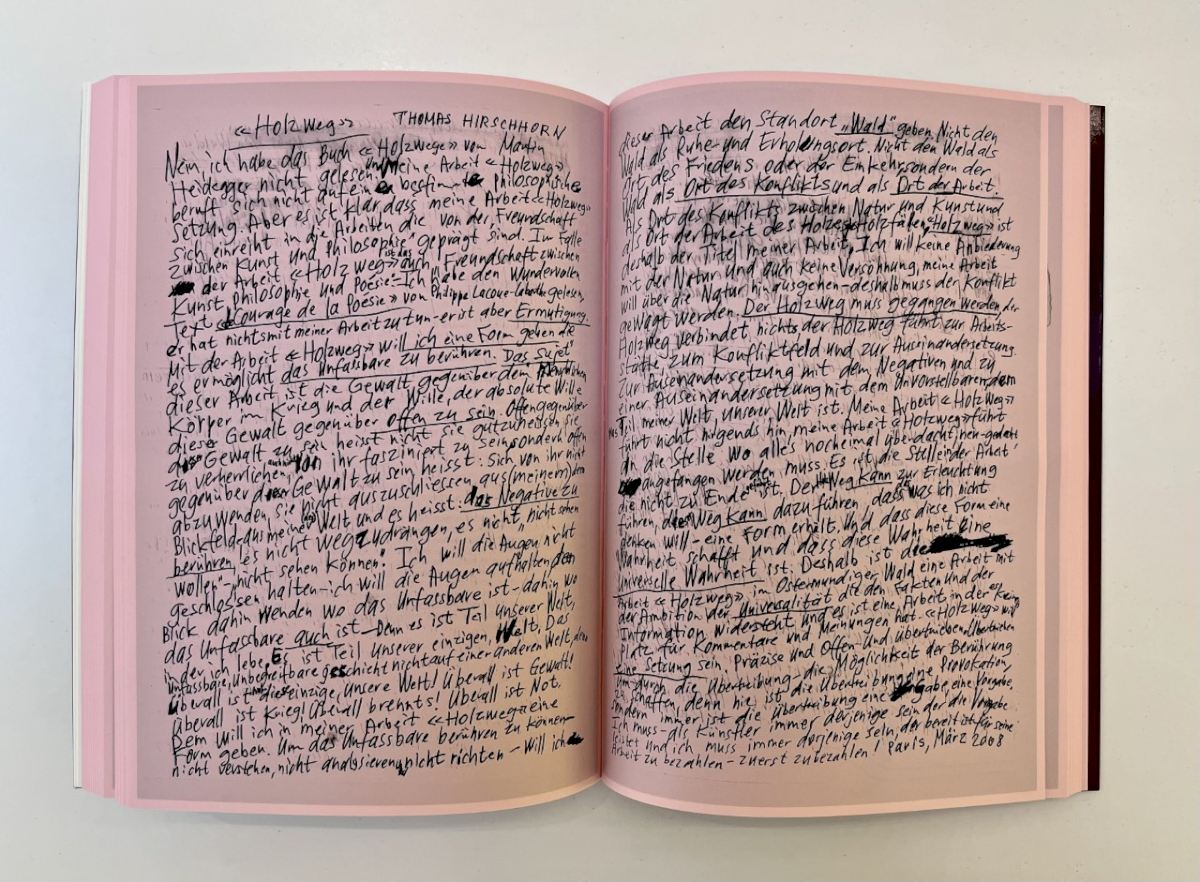 «Holzweg» THOMAS HIRSCHHORN
Nein ich habe das Buch «Holzwege» von Martin
Heidegger nicht gelesen und meine Arbeit «Holzweg»
beruft sich nicht auf eine bestimmte Philosophische
Setzung. Aber es ist klar dass meine Arbeit «Holzweg»
sich einreiht in die Arbeiten die von der „Freundschaft
zwischen Kunst und Philosophie" geprägt sind. Im Falle
der Arbeit «Holzweg» ist das auch Freundschaft zwischen
Kunst, Philosophie und Poesie. Ich habe den Wundervollen
Text «Courage de la Poésie» von Philippe Lacoue-Labarthe gelesen,
er hat nichts mit meiner Arbeit zu tun - er ist aber Ermutigung.
Mit der Arbeit «Holzweg» will ich eine Form geben die
es ermöglicht das Unfassbare zu berühren. Das Sujet
dieser Arbeit ist die Gewalt, gegenüber dem Menschlichen
Körper im Krieg und der Wille, der absolute Wille
dieser Gewalt gegenüber offen zu sein. Offen gegenüber
Gewalt zu sein heisst nicht sie gutzuheissen, sie
zu verherrlichen, von ihr fasziniert zu sein sondern offen
gegenüber dieser Gewalt zu sein heisst: Sich von ihr nicht
abzuwenden, Sie nicht auszuschliessen aus (meinem) dem
Blickfeld - aus meiner Welt und es heisst: das Negative zu
berühren, es nicht wegzudrängen, es nicht „nicht sehen
wollen" - nicht sehen können. Ich will die Augen nicht
geschlossen halten - ich will die Augen aufhalten den
Blick dahin wenden wo das Unfassbare ist - dahin wo
das Unfassbare auch ist - Denn es ist Teil unserer Welt,
in der ich lebe. Es ist Teil unserer einzigen, Welt. Das
Unfassbare, Unbegreifbare geschicht nicht auf einer anderen Welt, denn
Überall ist die einzige, unsere Welt! Überall ist Gewalt!
Überall ist Krieg! Überall brennts! Überall ist Not.
Dem will ich in meiner Arbeit «Holzweg» eine
Form geben. Um das Unfassbare berühren zu können
nicht verstehen, nicht analysieren, nicht richten - will ich
dieser Arbeit den Standort „Wald" geben. Nicht den
Wald als Ruhe- und Erholungsort. Nicht den Wald als
Ort des Friedens oder der Einkehr sondern der
Wald als Ort des Konflikts und als Ort der Arbeit.
Als Ort des Konflikts zwischen Natur und Kunst und
als Ort der Arbeit des Holzes Holzfällen. „Holzweg" ist
deshalb der Titel meiner Arbeit. Ich will keine Anbiederung
mit der Natur und auch keine Versöhnung, meine Arbeit
will über die Natur hinausgehen - deshalb muss der Konflikt
gewagt werden. Der Holzweg muss gegangen werden, der
Holzweg verbindet nichts der Holzweg führt zur Arbeits-
stätte, zum Konfliktfeld und zur Auseinandersetzung.
Zur Auseinandersetzung mit dem Negativen und zu
einer Auseinandersetzung mit dem Unvorstellbaren, dem
Teil meiner Welt, unserer Welt ist. Meine Arbeit «Holzweg»
führt nicht nirgends hin, meine Arbeit «Holzweg» führt
an die Stelle wo alles nocheimal überdacht, neu-gedacht
angefangen werden muss. Es ist die Stelle in der Arbeit
die nicht zu Ende ist. Der Weg Kann zur Erleuchtung
führen, der Weg Kann dazu führen, dass was ich nicht
denken will - eine Form erhält. Und dass diese Form eine
Wahrheit schafft und dass diese Wahrheit eine
universelle Wahrheit ist. Deshalb ist die
Arbeit «Holzweg» im Ostermundiger Wald eine Arbeit mit
der Ambition der Universalität die den Fakten und der
Information widersteht und es ist eine Arbeit in der kein
Platz für Kommentare und Meinungen hat. «Holzweg» will
eine Setzung sein. Präzise und Offen - Und übertrieben. Übertrieben
um durch die Übertreibung - die Möglichkeit der Berührung
zu schaffen, denn nie ist die Übertreibung eine Provokation,
sondern immer ist die Übertreibung eine Vorgabe.
Ich muss als Künstler immer derjenige sein der die Vorgabe
leistet und ich muss immer derjenige sein, der bereit ist für seine
Arbeit zu bezahlen - zuerst zu bezahlen / Paris, März 2008